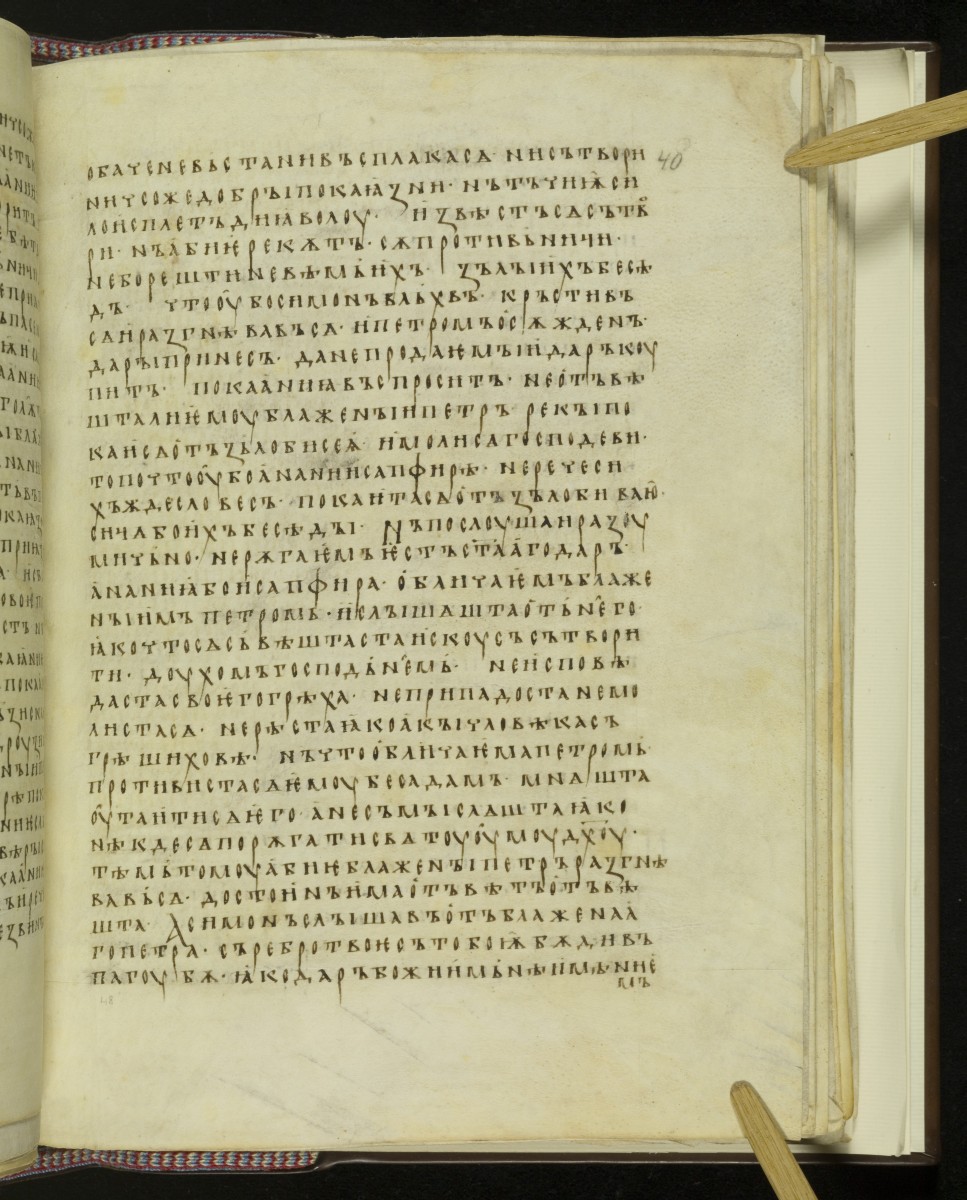 обаче не вьстани въсплакасѧ· ни сътвори
ничсоже добрꙑ по каꙗзни· нъ тъчиѭ си
лои сплетъ диꙗволоу· извѣстъ сѧ сътво
ри· нъ абиѥ рекѫтъ· сѫпротивьничи·
неборешти невѣмꙑихъ· зълꙑихъ бесѣ
дъ· что оубо симонъ вльхвъ· кръстивъ
сѧ и разгнѣвавъ сѧ· и петромъ осѫжденъ·
дарꙑ принесъ· да непродаѥмꙑи даръ коу
питъ· покааниꙗ въспроситъ· не отъвѣ
шта ли ѥмоу блаженꙑи петръ рекꙑ по
каи сѧ отъ зълоби сеѧ и моли сѧ господеви·
то почто оубо ананни и сапфирѣ· нерече си
хъжде словесъ· покаита сѧ отъ зълоби ваю·
сичѧ бо ихъ бесѣдꙑ· Нъ послоушаи разоу
мичьно· нерѫгаѥмъ ѥстъ стаагодаръ·
ананиꙗ бо и сапфира· обличаѥмъ блаже
нꙑимъ петромь· и слꙑшѧшта отъ н҄его
ꙗко что сѧ съвѣштаста искоусъ сътвори
ти· доухомъ господьн҄емь· не исповѣ
даста своѥго грѣха· не припадоста немо
листа сѧ· нерѣста ꙗко акꙑ чловѣка съ
грѣшиховѣ· нъ что обличаѥма петромь
противиста сѧ ѥмоу бесѧдамъ· мнѧшта
оутаити сѧ ѥго· а не съмꙑслѧшта ꙗко
нѣкде сѧ порѫгати свѧтоуоумоу дхоу·
тѣмьтомоу абиѥ блаженꙑ петръ разгнѣ
вавъ сѧ· достоинъ има отъвѣтъ отъвѣ
шта· А симонъ слꙑшавъ отъ блаженаа
го петра· съребро твоѥ съ тобоѭ бѫди въ
пагоубѫ· ꙗко даръ божии мьнѣ имѣниѥ
мъ
40